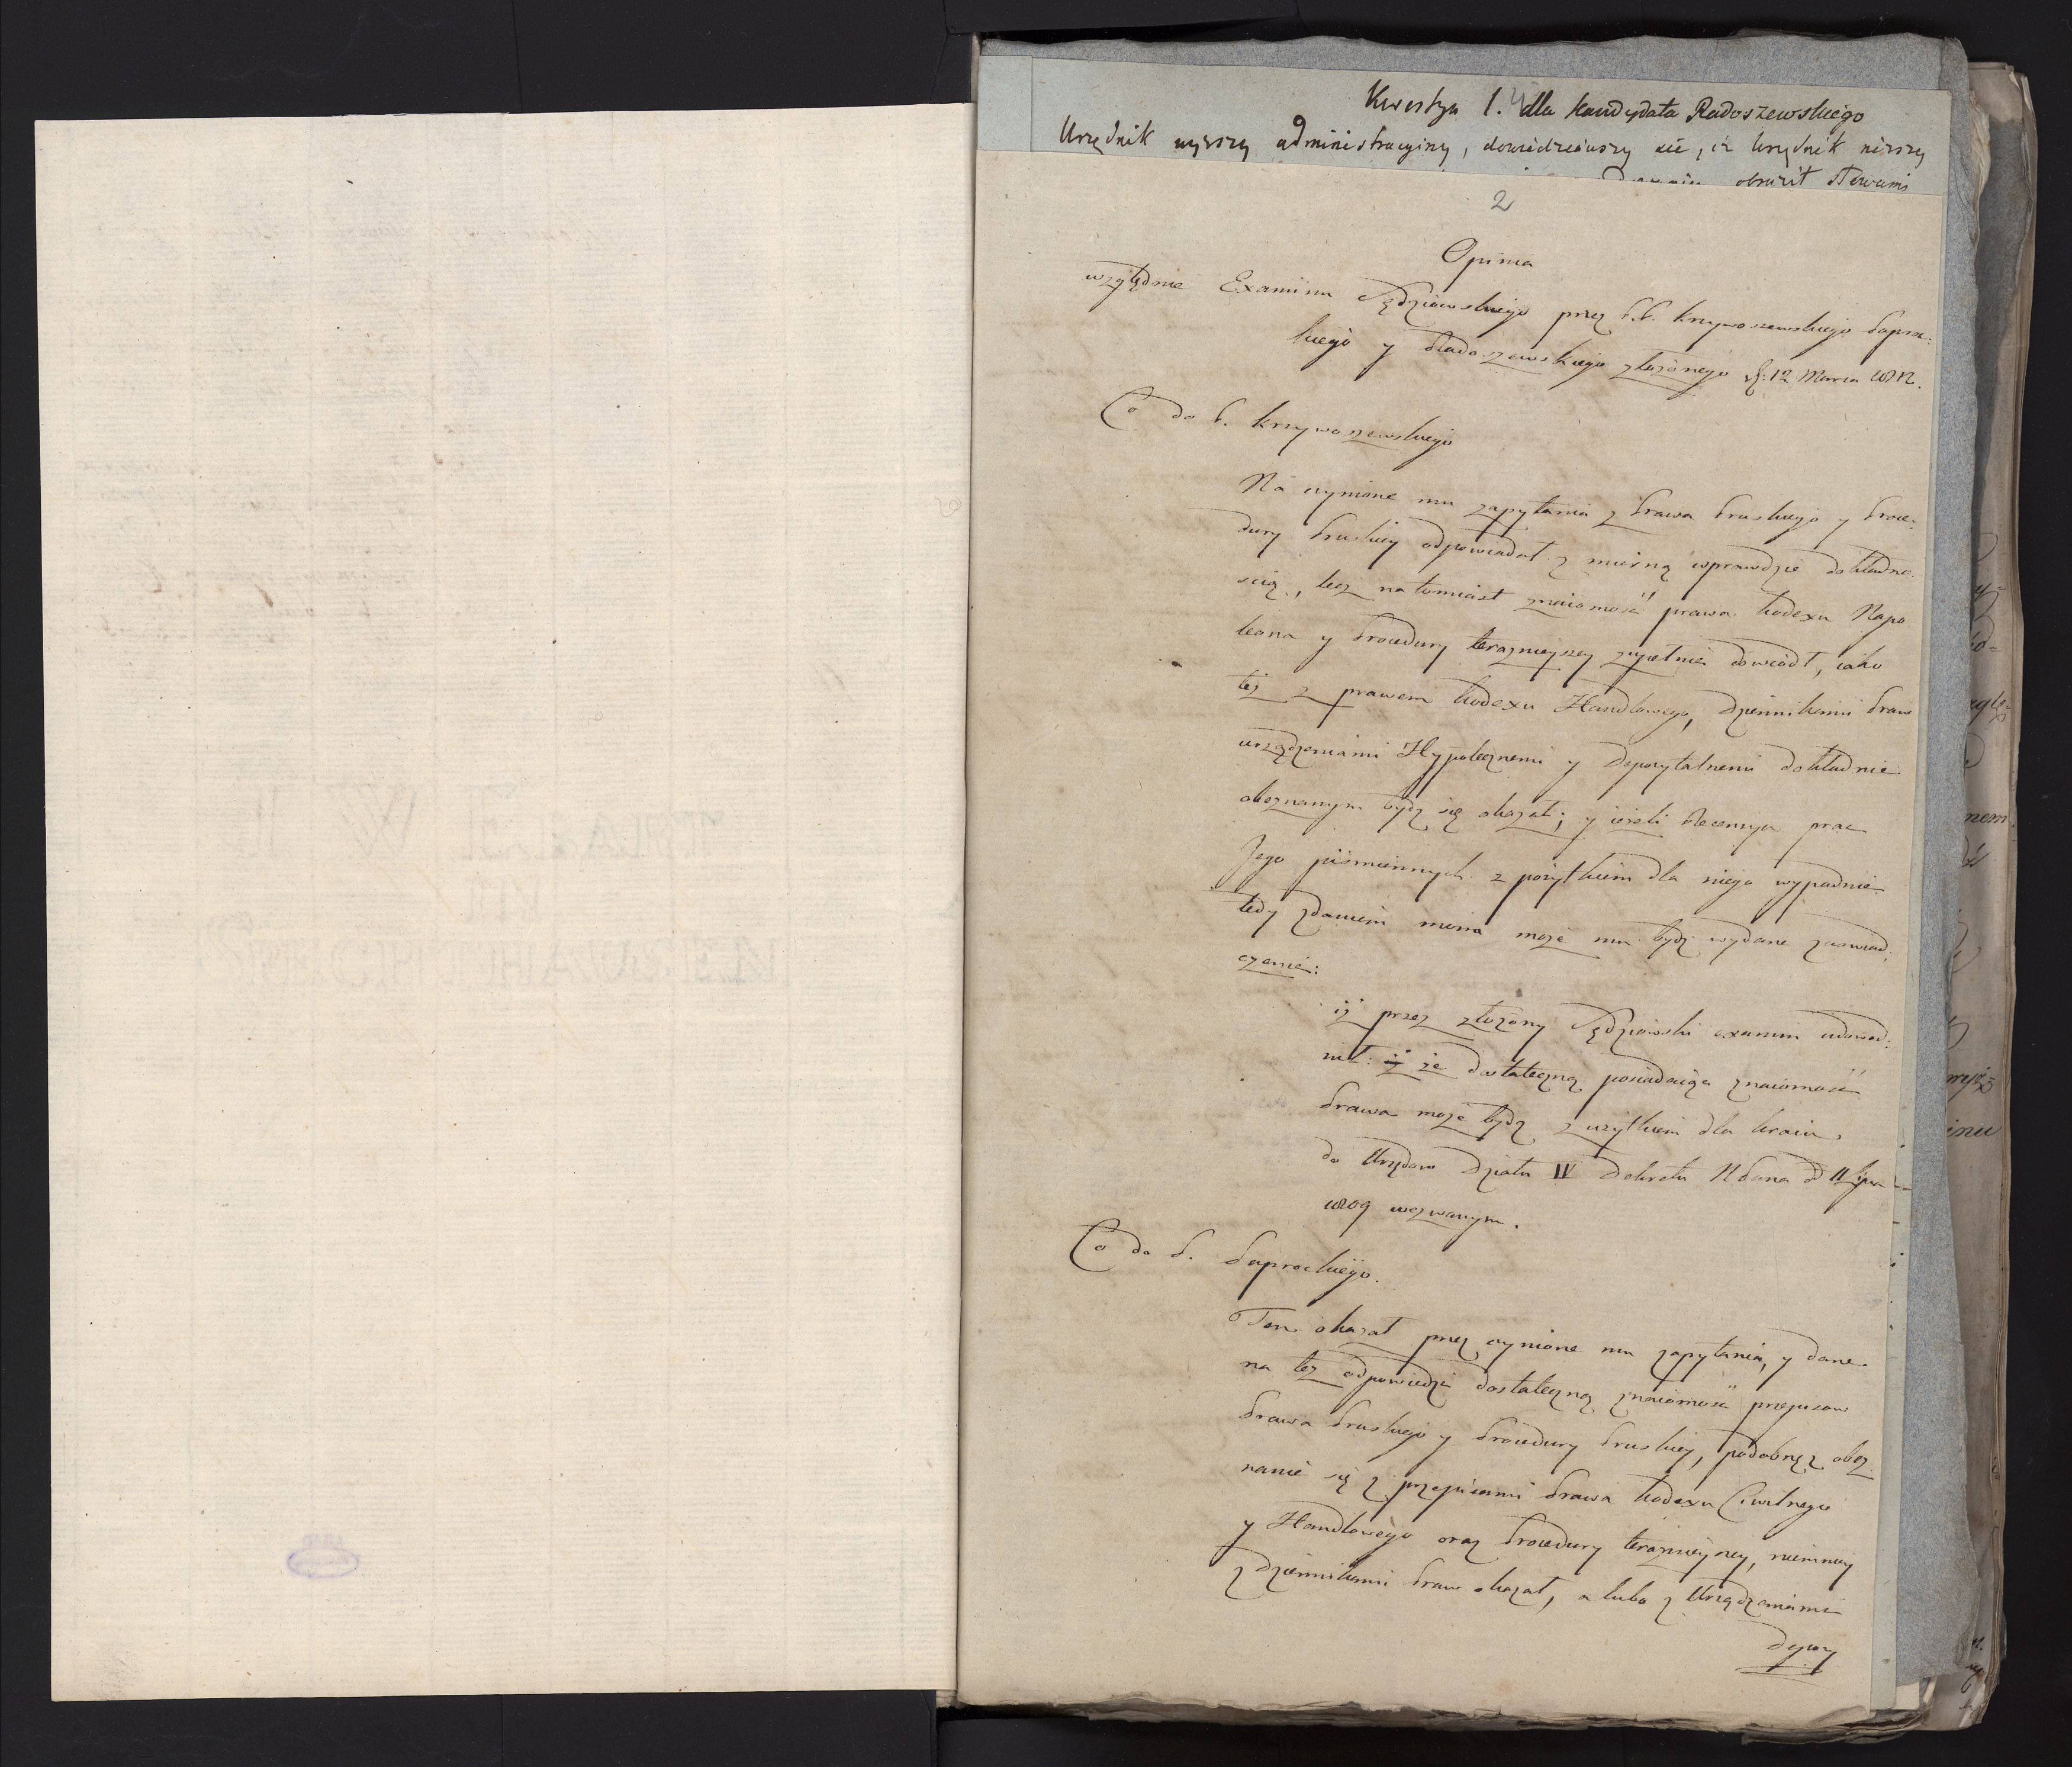 Kwestya 1. dla kandydata Radoszewskiego
Urzędnik wyższy administracyiny, dowiedziawszy sie, iż Urzędnik niższy
obraził słowami
2
Opinia
względnie Examinu Sędziowskiego przez P.P. Krzywoszewskiego Paproc:
kiego y Radoszewskiego złożonego d: 12 Marca 1812.
Co do P. Krzywoszewskiego
Na czynione mu zapytania z Prawa Pruskiego y Proce:
dury Pruskiey odpowiadał z mierną wprawdzie dokładno:
scią, lecz natomiast znaiomość prawa Kodexu Napo
leona y Procedury teraznieyszey zupełnie dowiodł, iako
też z prawem Kodexu Handlowego, Dziennikami Praw
urządzeniami Hypotecznemi y Depozytalnemi dokładnie
obeznanym bydź się okazał; y ieżeli Recenzya prac
Jego piśmiennych z pożytkiem dla niego wypadnie
tedy zdaniem moim może mu bydź wydane zaswiad:
czenie:
iż przez złożony Sędziowski examin udowod:
nił: iż że dostateczną posiadaiąc znaiomość
Prawa może bydź z użytkiem dla kraiu
do Urzędow Działu IV Dekretu NPana d 11 Lipca
1809 wezwanym.
Co do P. Paprockiego.
Ten okazał przez czynione mu zapytania, y dane
na też odpowiedzi dostateczną znaiomość przepisow
Prawa Pruskiego y Procedury Pruskiey, podobnęż obez
nanie się z przepisami Prawa Kodexu Cywilnego
y Handlowego oraz Procedury teraznieyszey, niemniey
z Dziennikami Praw okazał, a lubo z Urządzeniami
Depozy